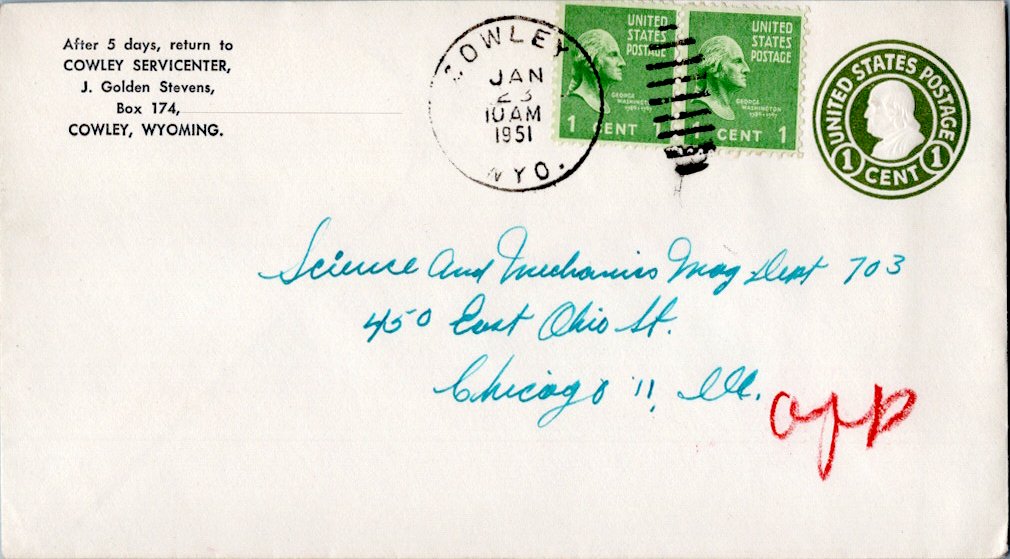 After 5 days, return to
COWLEY SERVICENTER,
J. Golden Stevens,
Box 174,
COWLEY, WYOMING.
COWLEY
JAN
23
10 AM
1951
WYO.
UNITED
STATES
POSTAGE
GEORGE
WASHINGTON
1789-1797
1 CENT 1
UNITED
STATES
POSTAGE
GEORGE
WASHINGTON
1789-1797
1 CENT 1
UNITED STATES POSTAGE
1 CENT 1
Science And Mechanics Mag Dept 703
450 East Ohio St.
Chicago 11, Ill.
app